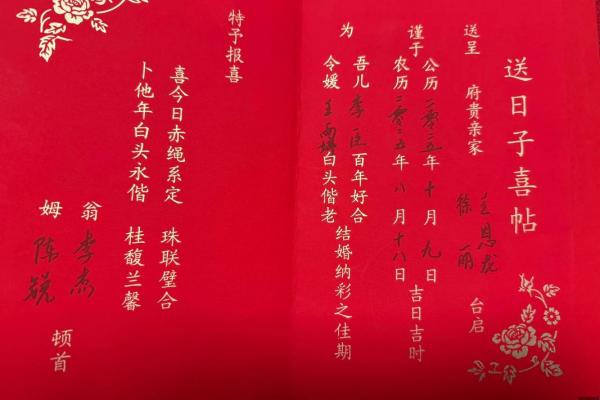 送日子喜帖
送呈 府贵亲家 王恩龙 徐丽 台启
谨于 公历二〇二五年十月九日 农历二〇二五年八月十八日 吉日吉时
为 吾儿李臣百年好合 令媛王雨白头偕老 结婚纳彩之佳期
特予报喜
喜今日赤绳系定 珠联璧合
卜他年白头永偕 桂馥兰馨
翁 李杰
姆 陈锐 顿首